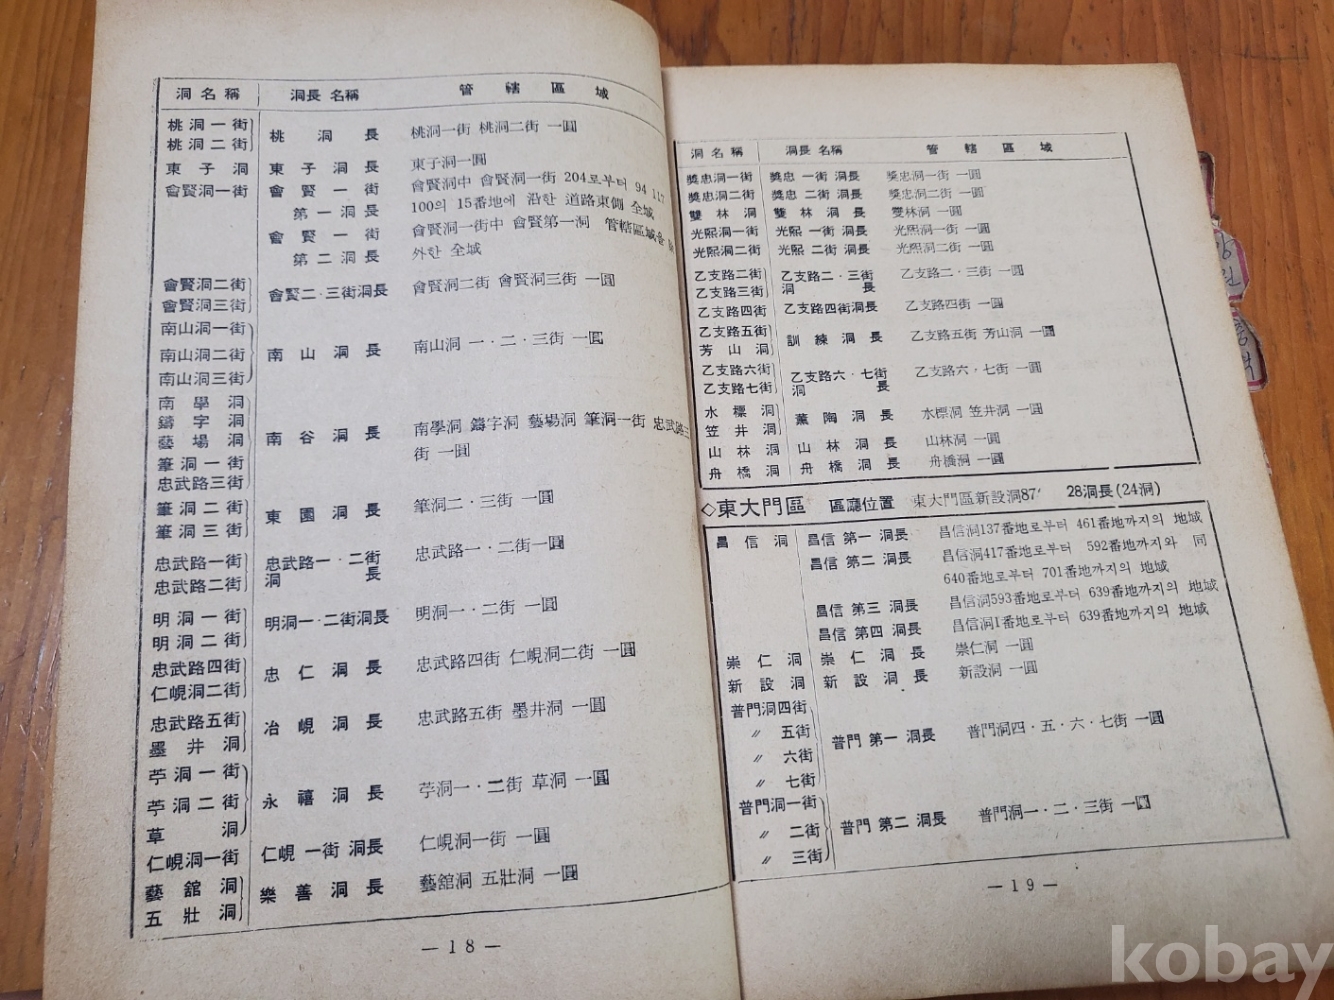 洞名稱 洞長名稱 管轄區域
桃洞一街 桃洞長 桃洞一街 桃洞二街 一圓
桃洞二街
東子洞 東子洞長 東子洞一圓
會賢洞一街 會賢一街 會賢洞中 會賢洞一街 204로부터 94 117
第一洞長 100의 15番地에 沿한 道路東側 全域
會賢一街 會賢洞一街中 會賢第一洞 管轄區域을
第二洞長 外한 全域
會賢洞二街 會賢二·三街洞長 會賢洞二街 會賢洞三街 一圓
會賢洞三街
南山洞一街
南山洞二街 南山洞長 南山洞 一·二·三街 一圓
南山洞三街
南學洞
鑄字洞
藝場洞 南谷洞長 南學洞 鑄字洞 藝場洞 筆洞一街 忠武路三
筆洞一街 街 一圓
忠武路三街
筆洞二街 東園洞長 筆洞二·三街 一圓
筆洞三街
忠武路一街 忠武路一·二街 忠武路一·二街一圓
忠武路二街 洞長
明洞一街 明洞一·二街洞長 明洞一·二街 一圓
明洞二街
忠武路四街 忠仁洞長 忠武路四街 仁峴洞二街 一圓
仁峴洞二街
忠武路五街 冶峴洞長 忠武路五街 墨井洞 一圓
墨井洞
苧洞一街
苧洞二街 永禧洞長 苧洞一·二街 草洞 一圓
草洞
仁峴洞一街 仁峴一街洞長 仁峴洞一街 一圓
藝舘洞 樂善洞長 藝舘洞 五壯洞 一圓
五壯洞
— 18 —
洞名稱 洞長名稱 管轄區域
奬忠洞一街 奬忠一街洞長 奬忠洞一街 一圓
奬忠洞二街 奬忠二街洞長 奬忠洞二街 一圓
雙林洞 雙林洞長 雙林洞 一圓
光熙洞一街 光熙一街洞長 光熙洞一街 一圓
光熙洞二街 光熙二街洞長 光熙洞二街 一圓
乙支路二街 乙支路二·三街 乙支路二·三街 一圓
乙支路三街 洞長
乙支路四街 乙支路四街洞長 乙支路四街 一圓
乙支路五街 訓練洞長 乙支路五街 芳山洞 一圓
芳山洞
乙支路六街 乙支路六·七街 乙支路六·七街 一圓
乙支路七街 洞長
水標洞 薰陶洞長 水標洞 笠井洞 一圓
笠井洞
山林洞 山林洞長 山林洞 一圓
舟橋洞 舟橋洞長 舟橋洞 一圓
◇東大門區 區廳位置 東大門區新設洞87 28洞長(24洞)
昌信洞 昌信第一洞長 昌信洞137番地로부터 461番地까지의 地域
昌信第二洞長 昌信洞417番地로부터 592番地까지와 同
640番地로부터 701番地까지의 地域
昌信第三洞長 昌信洞593番地로부터 639番地까지의 地域
昌信第四洞長 昌信洞1番地로부터 639番地까지의 地域
崇仁洞 崇仁洞長 崇仁洞 一圓
新設洞 新設洞長 新設洞 一圓
普門洞四街
〃 五街 普門第一洞長 普門洞四·五·六·七街 一圓
〃 六街
〃 七街
普門洞一街
〃 二街 普門第二洞長 普門洞一·二·三街 一圓
〃 三街
— 19 —
kobay